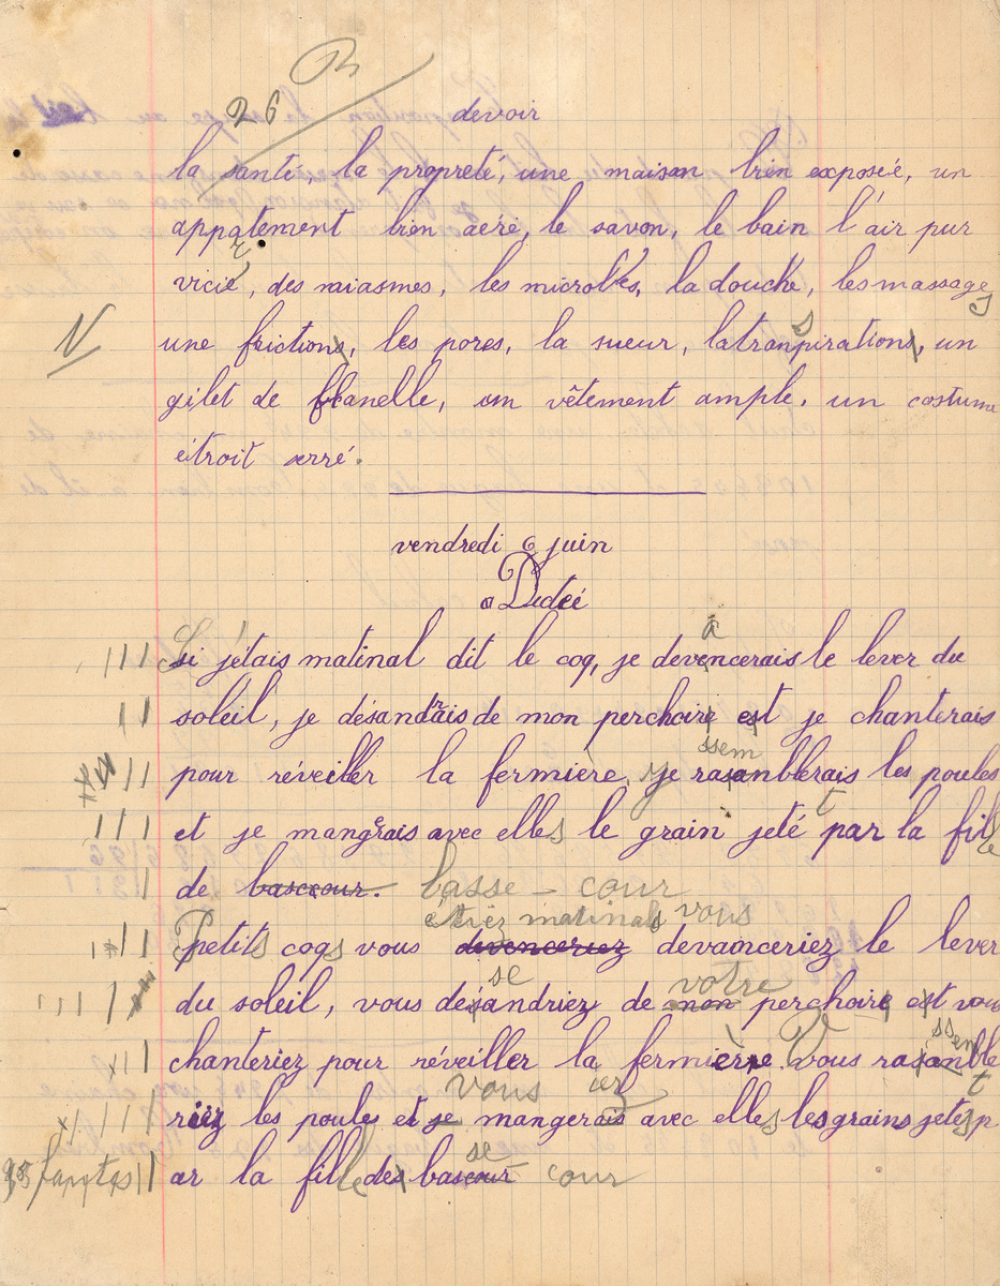 B
26
devoir
la santé, la propreté, une maison bien exposée, un
appatement bien aéré, le savon, le bain l'air pur
r
vicié, des miasmes, les microbes, la douche, les massage
s
N
s
une frictions, les pores, la sueur, la tranpirations, un
gilet de flanelle, um vêtement ample, un costume
étroit serré.
vendredi 6 juin
Dictée
a
III Si j'étais matinal dit le coq, je devencerais le lever du
II soleil, je désandrais de mon perchoire est je chanterais
ssem
II pour réveiller la fermière, je rasanblerais les poules
t
III et je mangerais avec elles le grain jeté par la fille
I de bascour. basse-cour
étiez matinals vous
II Petits coqs vous devenceriez devanceriez le lever
se votre
III du soleil, vous désandriez de mon perchoire est vous
ssem
II chanteriez pour réveiller la fermière. Vous rasanble
vous iez t
IIII riez les poules et je mangerais avec elles les grains jetés p
se
35 fautes II ar la fille des bascour cour